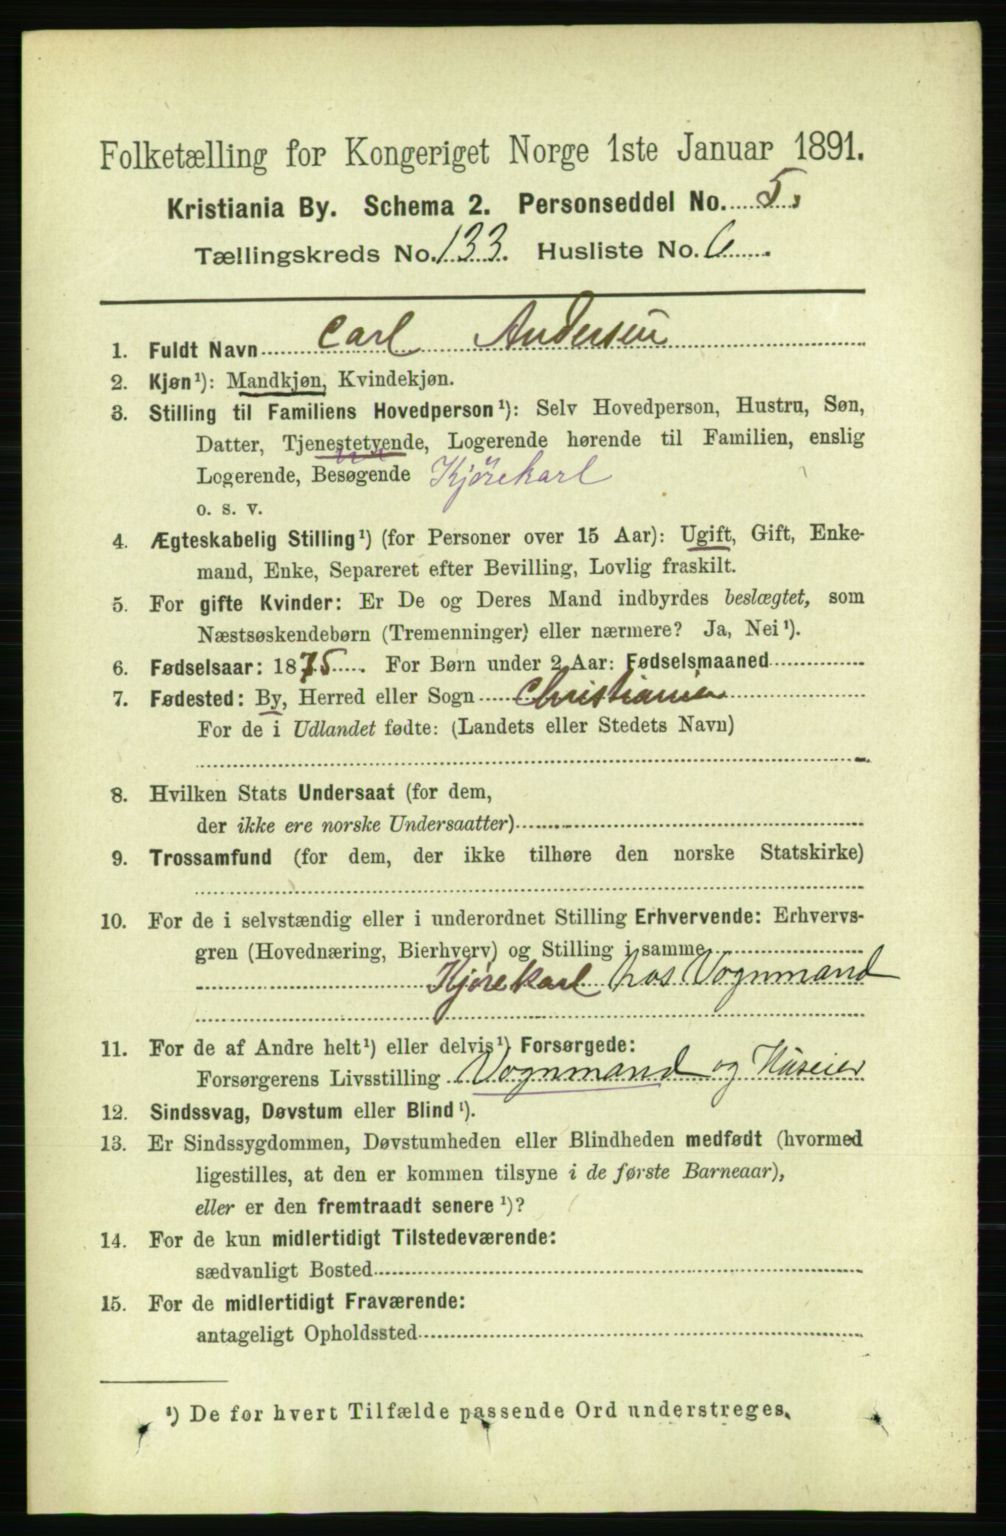 Folketælling for Kongeriget Norge 1ste Januar 1891.
Kristiania By. Schema 2. Personseddel No. 5.
Tællingskreds No. 133. Husliste No. 6.
1. Fuldt Navn Carl Andersen
2. Kjøn¹): Mandkjøn, Kvindekjøn.
3. Stilling til Familiens Hovedperson¹): Selv Hovedperson, Hustru, Søn,
Datter, Tjenestetyende, Logerende hørende til Familien, enslig
Logerende, Besøgende Kjørekarl
o. s. v.
4. Ægteskabelig Stilling¹) (for Personer over 15 Aar): Ugift, Gift, Enke-
mand, Enke, Separeret efter Bevilling, Lovlig fraskilt.
5. For gifte Kvinder: Er De og Deres Mand indbyrdes beslægtet, som
Næstsøskendebørn (Tremenninger) eller nærmere? Ja, Nei¹).
6. Fødselsaar: 1875. For Børn under 2 Aar: Fødselsmaaned
7. Fødested: By, Herred eller Sogn Christiania
For de i Udlandet fødte: (Landets eller Stedets Navn)
8. Hvilken Stats Undersaat (for dem,
der ikke ere norske Undersaatter)
9. Trossamfund (for dem, der ikke tilhøre den norske Statskirke)
10. For de i selvstændig eller i underordnet Stilling Erhvervende: Erhvervs-
gren (Hovednæring, Bierhverv) og Stilling i samme
Kjørekarl hos Vognmand
11. For de af Andre helt¹) eller delvis¹) Forsørgede:
Forsørgerens Livsstilling Vognmand og Huseier
12. Sindssvag, Døvstum eller Blind¹).
13. Er Sindssygdommen, Døvstumheden eller Blindheden medfødt (hvormed
ligestilles, at den er kommen tilsyne i de første Barneaar),
eller er den fremtraadt senere¹)?
14. For de kun midlertidigt Tilstedeværende:
sædvanligt Bosted
15. For de midlertidigt Fraværende:
antageligt Opholdssted
¹) De for hvert Tilfælde passende Ord understreges.